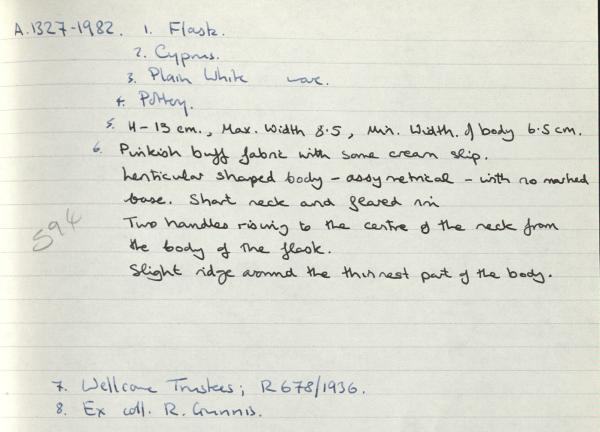 A.1327-1982. 1. Flask.
2. Cyprus.
3. Plain White ware.
4. Pottery.
5. H - 13 cm., Max. Width 8.5, Min. Width. of body 6.5 cm.
6. Pinkish buff fabric with some cream slip.
Lenticular shaped body - assymetrical - with no marked
base. Short neck and fleared rim
Two handles rising to the centre of the neck from
the body of the flask.
Slight ridge around the thinnest part of the body.
594
7. Wellcome Trustees; R678/1936.
8. Ex coll. R. Gunnis.